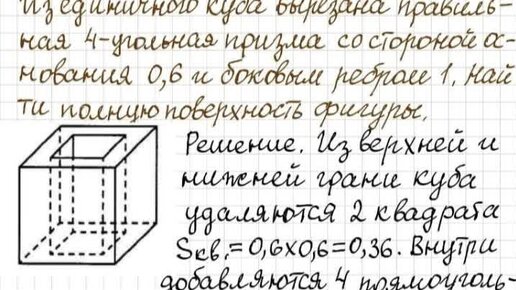 Из единичного куба вырезана правиль-
ная 4-угольная призма со стороной ос-
нования 0,6 и боковым ребром 1. Най
ти полную поверхность фигуры.
Решение. Из верхней и
нижней грани куба
удаляются 2 квадрата
Sкв.=0,6х0,6=0,36. Внутри
добавляются 4 прямоуголь-